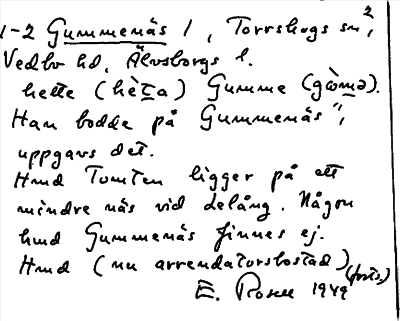 1-2 Gummenäs 1, Torrskogs sn,2
Vedbo hd, Älvsborgs l.
hette (hèta) Gumme (gòmə).
Han bodde på Gummenäs",
uppgavs det.
Hmd Tomten ligger på ett
mindre näs vid Lelång. Någon
hmd Gummenäs finnes ej.
Hmd (nu arrendatorsbostad) (forts.)
E. Rosell 1949